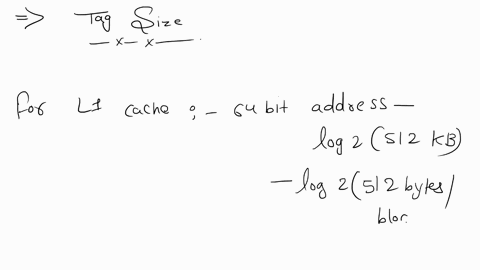 => Tag Size
for L1 cache ; - 64 bit address -
log 2 (512 KB)
- log 2 (512 bytes/
bloc